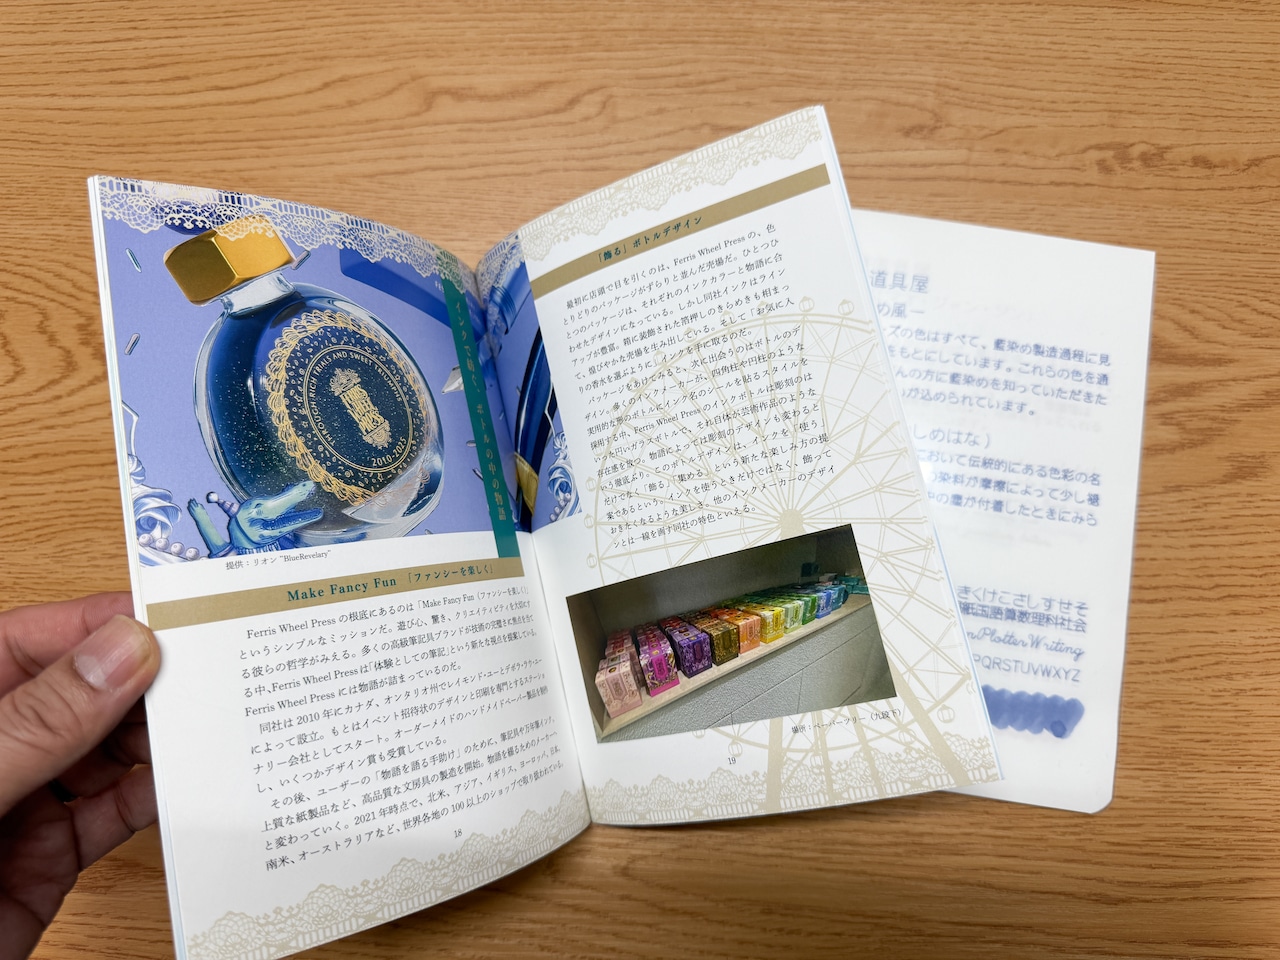 THROUGH RICH TRIALS AND SWEET TRIUMPHS
2010-2025
インクで紡ぐ、ボトルの中の物語
提供：リオン "BlueRevelary"
Make Fancy Fun 「ファンシーを楽しく」
Ferris Wheel Press の根底にあるのは「Make Fancy Fun（ファンシーを楽しく）」
というシンプルなミッションだ。遊び心、驚き、クリエイティビティを大切にす
る彼らの哲学がみえる。多くの高級筆記具ブランドが技術の完璧さに焦点を当て
る中、Ferris Wheel Press は「体験としての筆記」という新たな視点を提案している。
Ferris Wheel Press には物語が詰まっているのだ。
同社は 2010 年にカナダ、オンタリオ州でレイモンド・ユーとデボラ・ラウ・ユー
によって設立。もとはイベント招待状のデザインと印刷を専門とするステーショ
ナリー会社としてスタート。オーダーメイドのハンドメイドペーパー製品を制作
し、いくつかデザイン賞も受賞している。
その後、ユーザーの「物語を語る手助け」のために、筆記具や万年筆インク、
上質な紙製品など、高品質な文房具の製造を開始。物語を綴るためのメーカーへ
と変わっていく。2021 年時点で、北米、アジア、イギリス、ヨーロッパ、日本、
南米、オーストラリアなど、世界各地の 100 以上のショップで取り扱われている。
18
「飾る」ボトルデザイン
最初に店頭で目を引くのは、Ferris Wheel Press の、色
とりどりのパッケージがずらりと並んだ売場だ。ひとつひ
とつのパッケージは、それぞれのインクカラーと物語に合
わせたデザインになっている。しかし同社インクはライン
アップが豊富。箱に装飾された箔押しのきらめきも相まっ
て、煌びやかな売場を生み出している。そして「お気に入
りの香水を選ぶように」インクを手に取るのだ。
パッケージをあけてみると、次に出会うのはボトルのデ
ザイン。多くのインクメーカーが、四角柱や円柱のような
実用的な形のボトルにインク名のシールを貼るスタイルを
採用する中、Ferris Wheel Press のインクボトルは彫刻のは
いった円いガラスボトルで、それ自体が芸術作品のような
存在感を放つ。物語によっては彫刻のデザインも変わると
いう徹底ぶり。このボトルデザインは、インクを「使う」
だけでなく「飾る」「集める」という新たな楽しみ方の提
案であるという。インクを使うときだけではなく、飾って
おきたくなるような美しさ。他のインクメーカーのデザイ
ンとは一線を画す同社の特色といえる。
場所：ペーパーツリー（九段下）
19
道具屋
め風ー
ズの色はすべて、藍染め製造過程に見
をもとにしています。これらの色を通
んの方に藍染めを知っていただきた
が込められています。
しめはな）
において伝統的にある色彩の名
の染料が摩擦によって少し褪
の塵が付着したときにみら
きくけこさしすせそ
紙玉語算数理科社会
nPlotterWriting
PQRSTUVWXYZ